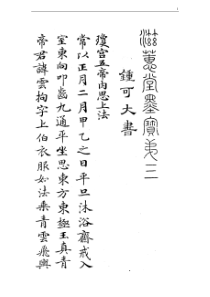 滋蕙堂墨寶卷二
鍾可大書
瓊宮五帝內思上法
常以正月二月甲乙之日平旦沐浴齋戒入
室東向叩齒九通平坐思東方東極玉真青
帝君諱雲拘字上伯衣服如法乘青雲飛輿